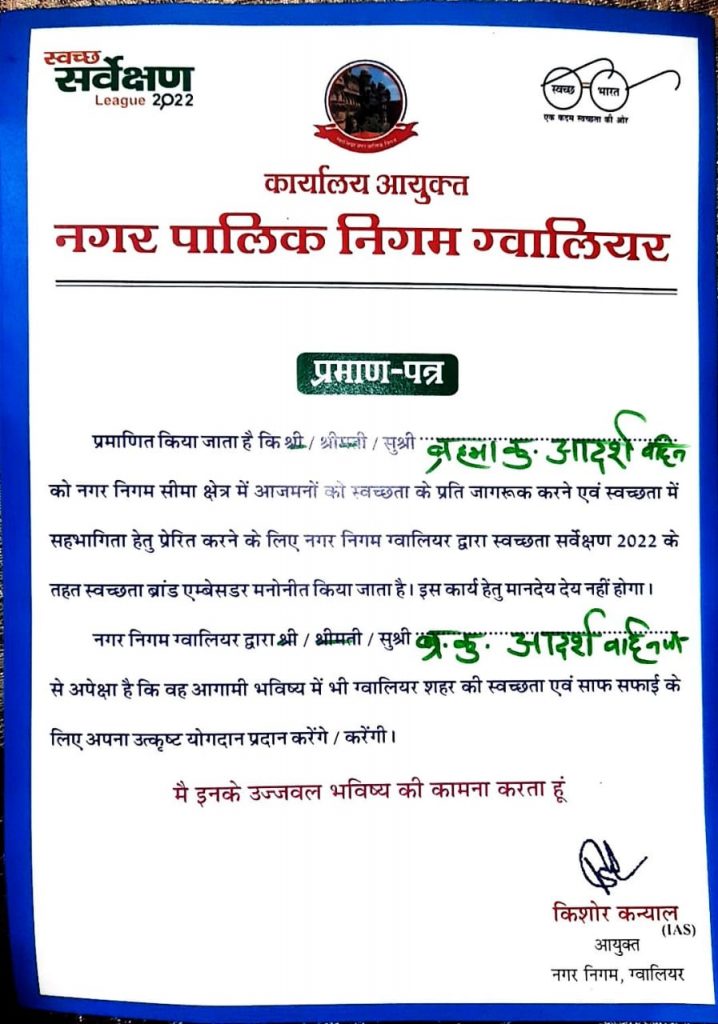 स्वच्छ
सर्वेक्षण
League 2022
स्वच्छ भारत
एक कदम स्वच्छता की ओर
कार्यालय आयुक्त
नगर पालिक निगम ग्वालियर
प्रमाण-पत्र
प्रमाणित किया जाता है कि श्री / श्रीमती / सुश्री ब्रह्मा कु. आदर्श बहिन
को नगर निगम सीमा क्षेत्र में आजमनों को स्वच्छता के प्रति जागरूक करने एवं स्वच्छता में
सहभागिता हेतु प्रेरित करने के लिए नगर निगम ग्वालियर द्वारा स्वच्छता सर्वेक्षण 2022 के
तहत स्वच्छता ब्रांड एम्बेसडर मनोनीत किया जाता है। इस कार्य हेतु मानदेय देय नहीं होगा।
नगर निगम ग्वालियर द्वारा श्री / श्रीमती / सुश्री ब्र. कु. आदर्श
से अपेक्षा है कि वह आगामी भविष्य में भी ग्वालियर शहर की स्वच्छता एवं साफ सफाई के
लिए अपना उत्कृष्ट योगदान प्रदान करेंगे / करेंगी।
मै इनके उज्जवल भविष्य की कामना करता हूं
किशोर कन्याल
(IAS)
आयुक्त
नगर निगम, ग्वालियर